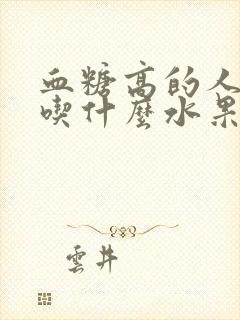 血糖高的人
喫什麼水果
雲井